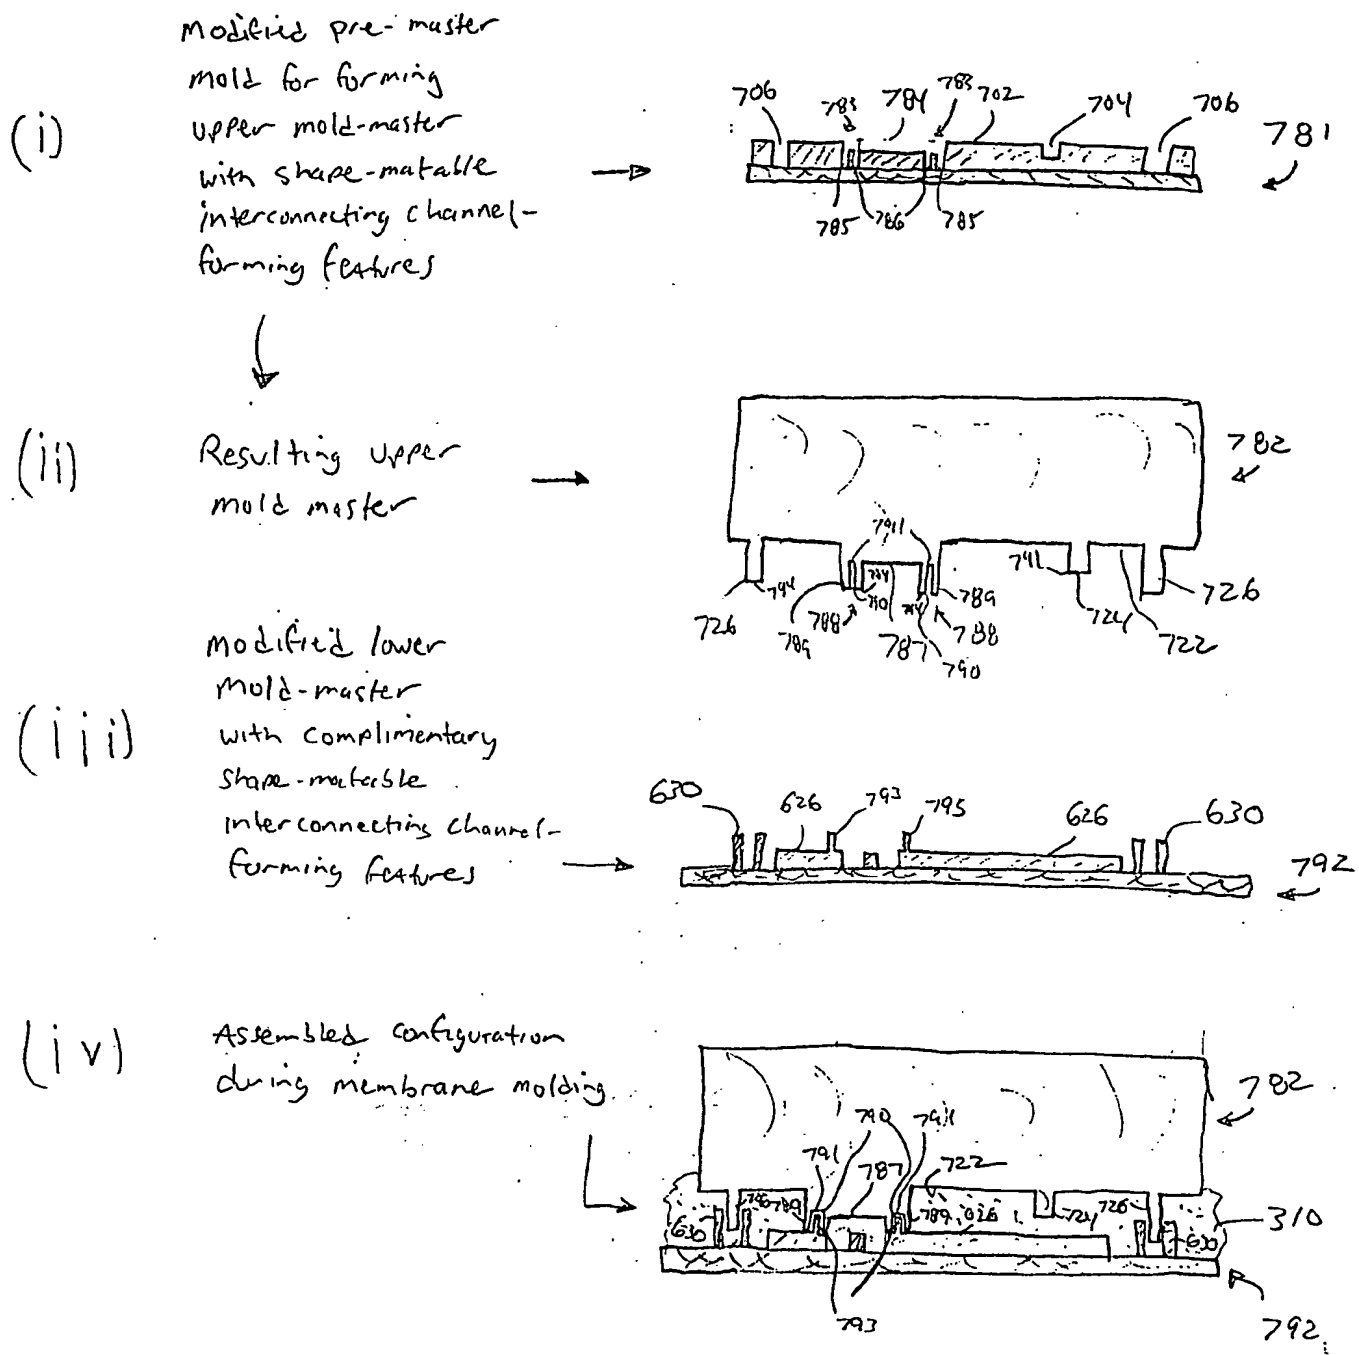 (i)
Modified pre-master
mold for forming
upper mold-master
with shape-matable
interconnecting channel-
forming features
706
783
784
783
702
704
706
781
785
786
785
(ii)
Resulting upper
mold master
782
791
794
784
790
741
726
789
788
787
790
788
789
724
722
726
(iii)
Modified lower
mold-master
with complimentary
shape-matable
interconnecting channel-
forming features
630
626
793
795
626
630
792
(iv)
Assembled configuration
during membrane molding
782
791
790
787
722
789
726
630
789
626
724
630
310
793
792